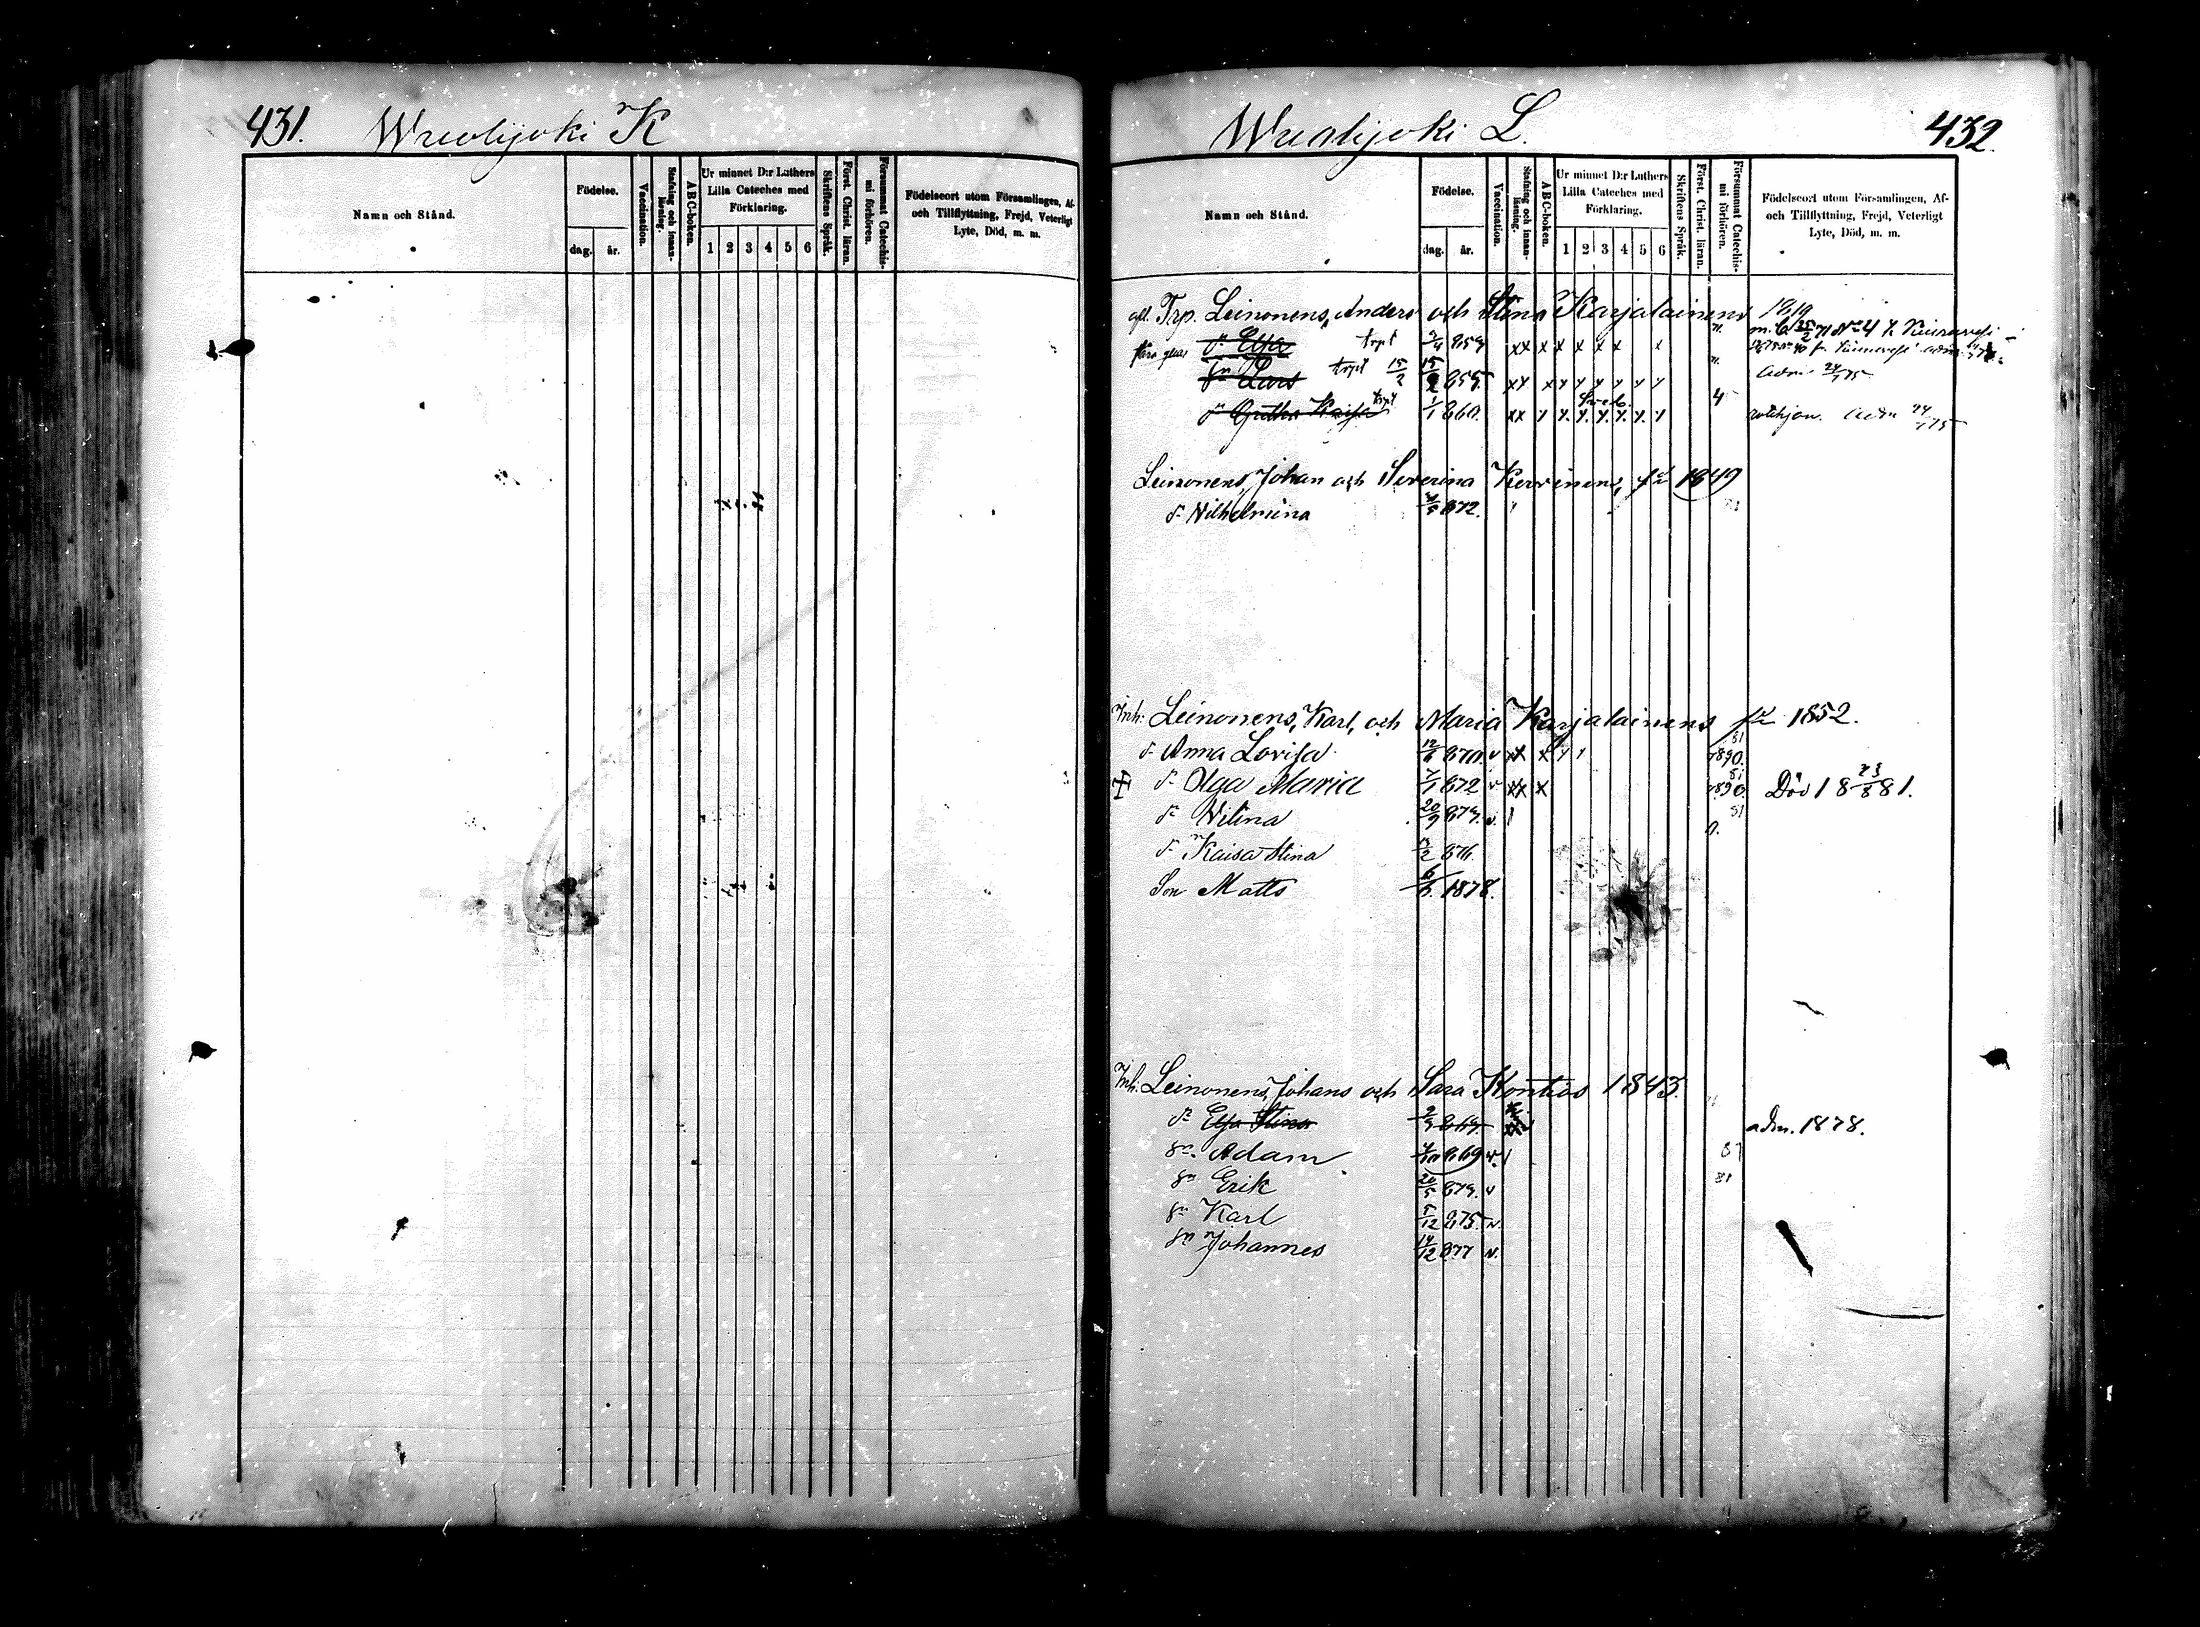 431. Wuolijoki K
Namn och Stånd.
Födelse.
dag. år.
Vaccination.
Stafning och innanläsning.
ABC-boken.
Ur minnet D:r Luthers Lilla Cateches med Förklaring.
1 2 3 4 5 6
Skriftens Språk.
Först. Christ. läran.
Försummat Catechismi förhören.
Födelseort utom Församlingen, Af- och Tillflyttning, Frejd, Veterligt Lyte, Död, m. m.
Wuolijoki L. 432.
Namn och Stånd.
Födelse.
dag. år.
Vaccination.
Stafning och innanläsning.
ABC-boken.
Ur minnet D:r Luthers Lilla Cateches med Förklaring.
1 2 3 4 5 6
Skriftens Språk.
Först. Christ. läran.
Försummat Catechismi förhören.
Födelseort utom Församlingen, Af- och Tillflyttning, Frejd, Veterligt Lyte, Död, m. m.
Trp. Leinonens, Anders och Stina Karjalainens
Elsa 859
Lars 15/2 855
Kaisa 1/1 860.
Leinonens, Johan och Severina Kervinens, 1849
d. Wilhelmina 872.
Inh: Leinonens, Karl, och Maria Karjalainens 1852.
d. Anna Lovisa 12/6 870. v xx x 1890.
d. Olga Maria 872 v xx x 1890. Död 18 23/8 81.
d. Vilina 20/9 874. v.
d. Kaisa Stina 876.
Son Matts 1878.
Inh: Leinonens, Johans och Sara Kontios 1843.
d. Elsa Stina 867. adm. 1878.
sn. Adam 869 v. 81
sn Erik 20/5 873. v 81
sn Karl 5/12 875. v.
sn Johannes 14/12 877 v.